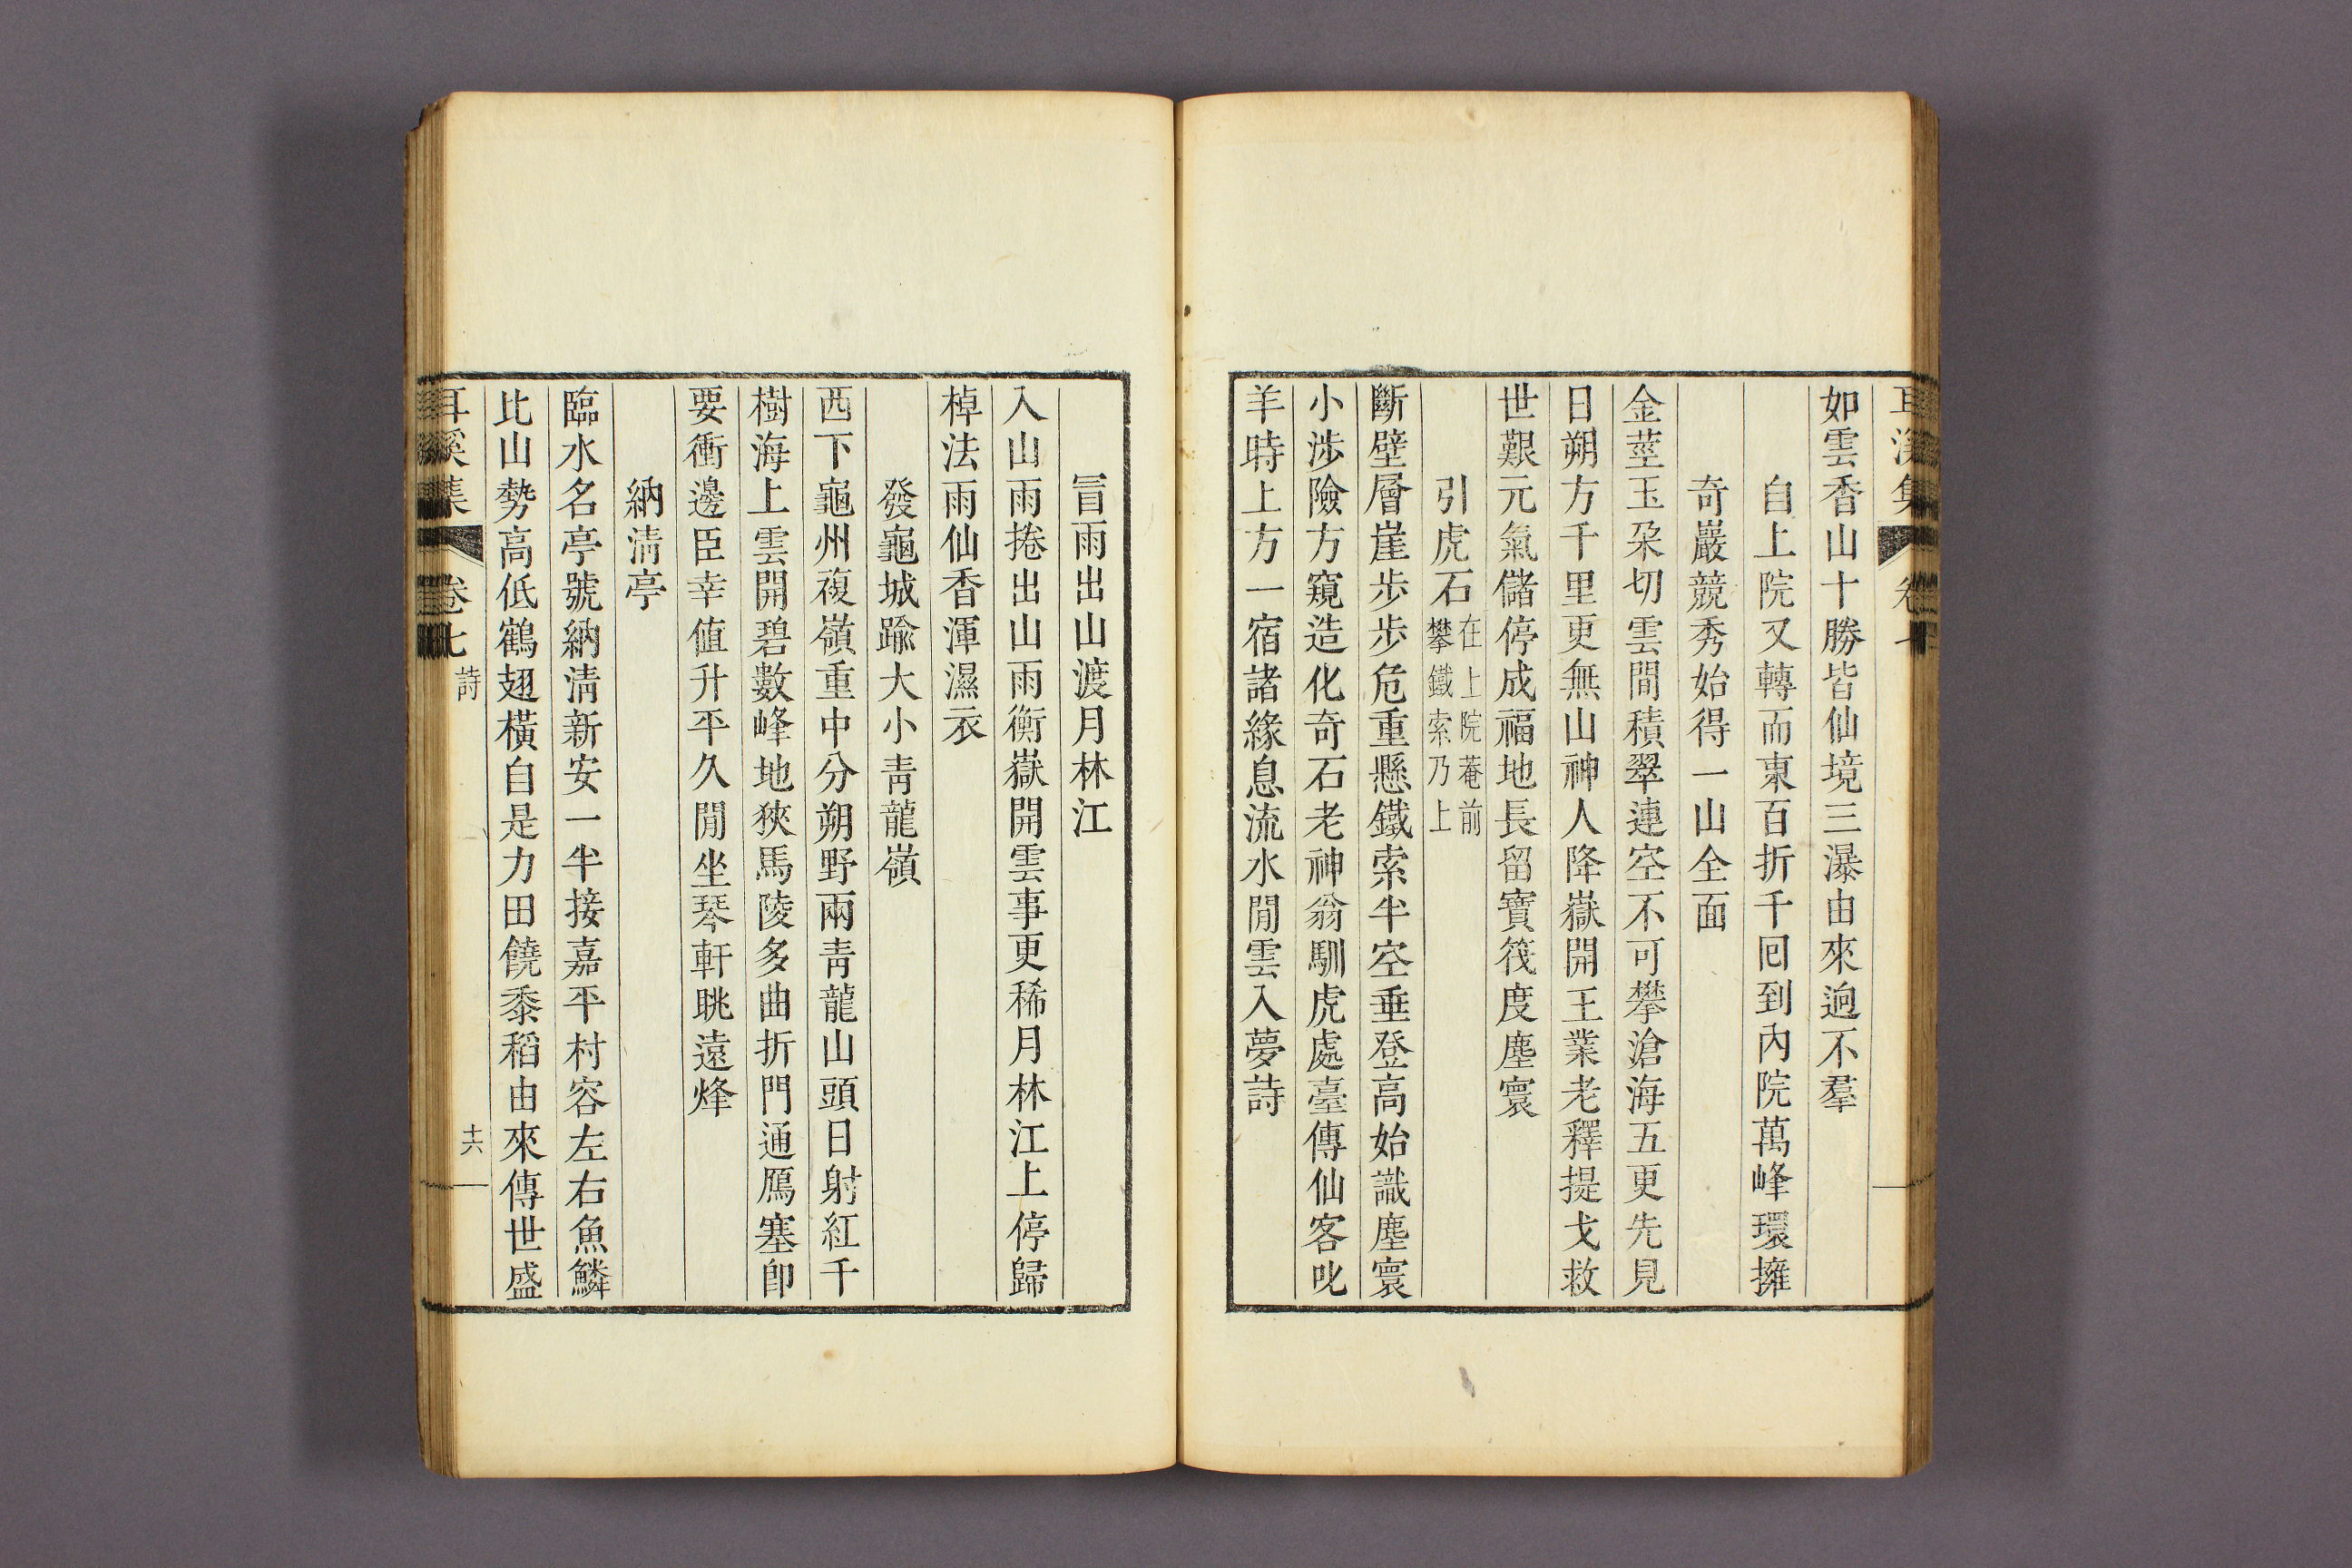 耳溪集 卷七
如雲香山十勝皆仙境三瀑由來逈不羣
自上院又轉而東百折千回到內院萬峰環擁
奇巖競秀始得一山全面
金莖玉朶切雲間積翠連空不可攀滄海五更先見
日朔方千里更無山神人降嶽開王業老釋提戈救
世艱元氣儲停成福地長留寶筏度塵寰
引虎石在上院菴前攀鐵索乃上
斷壁層崖步步危重懸鐵索半空垂登高始識塵寰
小涉險方窺造化奇石老神翁馴虎處臺傳仙客叱
羊時上方一宿諸緣息流水閒雲入夢詩
冒雨出山渡月林江
入山雨捲出山雨衡嶽開雲事更稀月林江上停歸
棹法雨仙香渾濕衣
發龜城踰大小靑龍嶺
西下龜州複嶺重中分朔野兩靑龍山頭日射紅千
樹海上雲開碧數峰地狹馬陵多曲折門通鴈塞卽
要衝邊臣幸値升平久閒坐琴軒眺遠烽
納淸亭
臨水名亭號納淸新安一半接嘉平村容左右魚鱗
比山勢高低鶴翅橫自是力田饒黍稻由來傳世盛
耳溪集 卷七 詩 十六